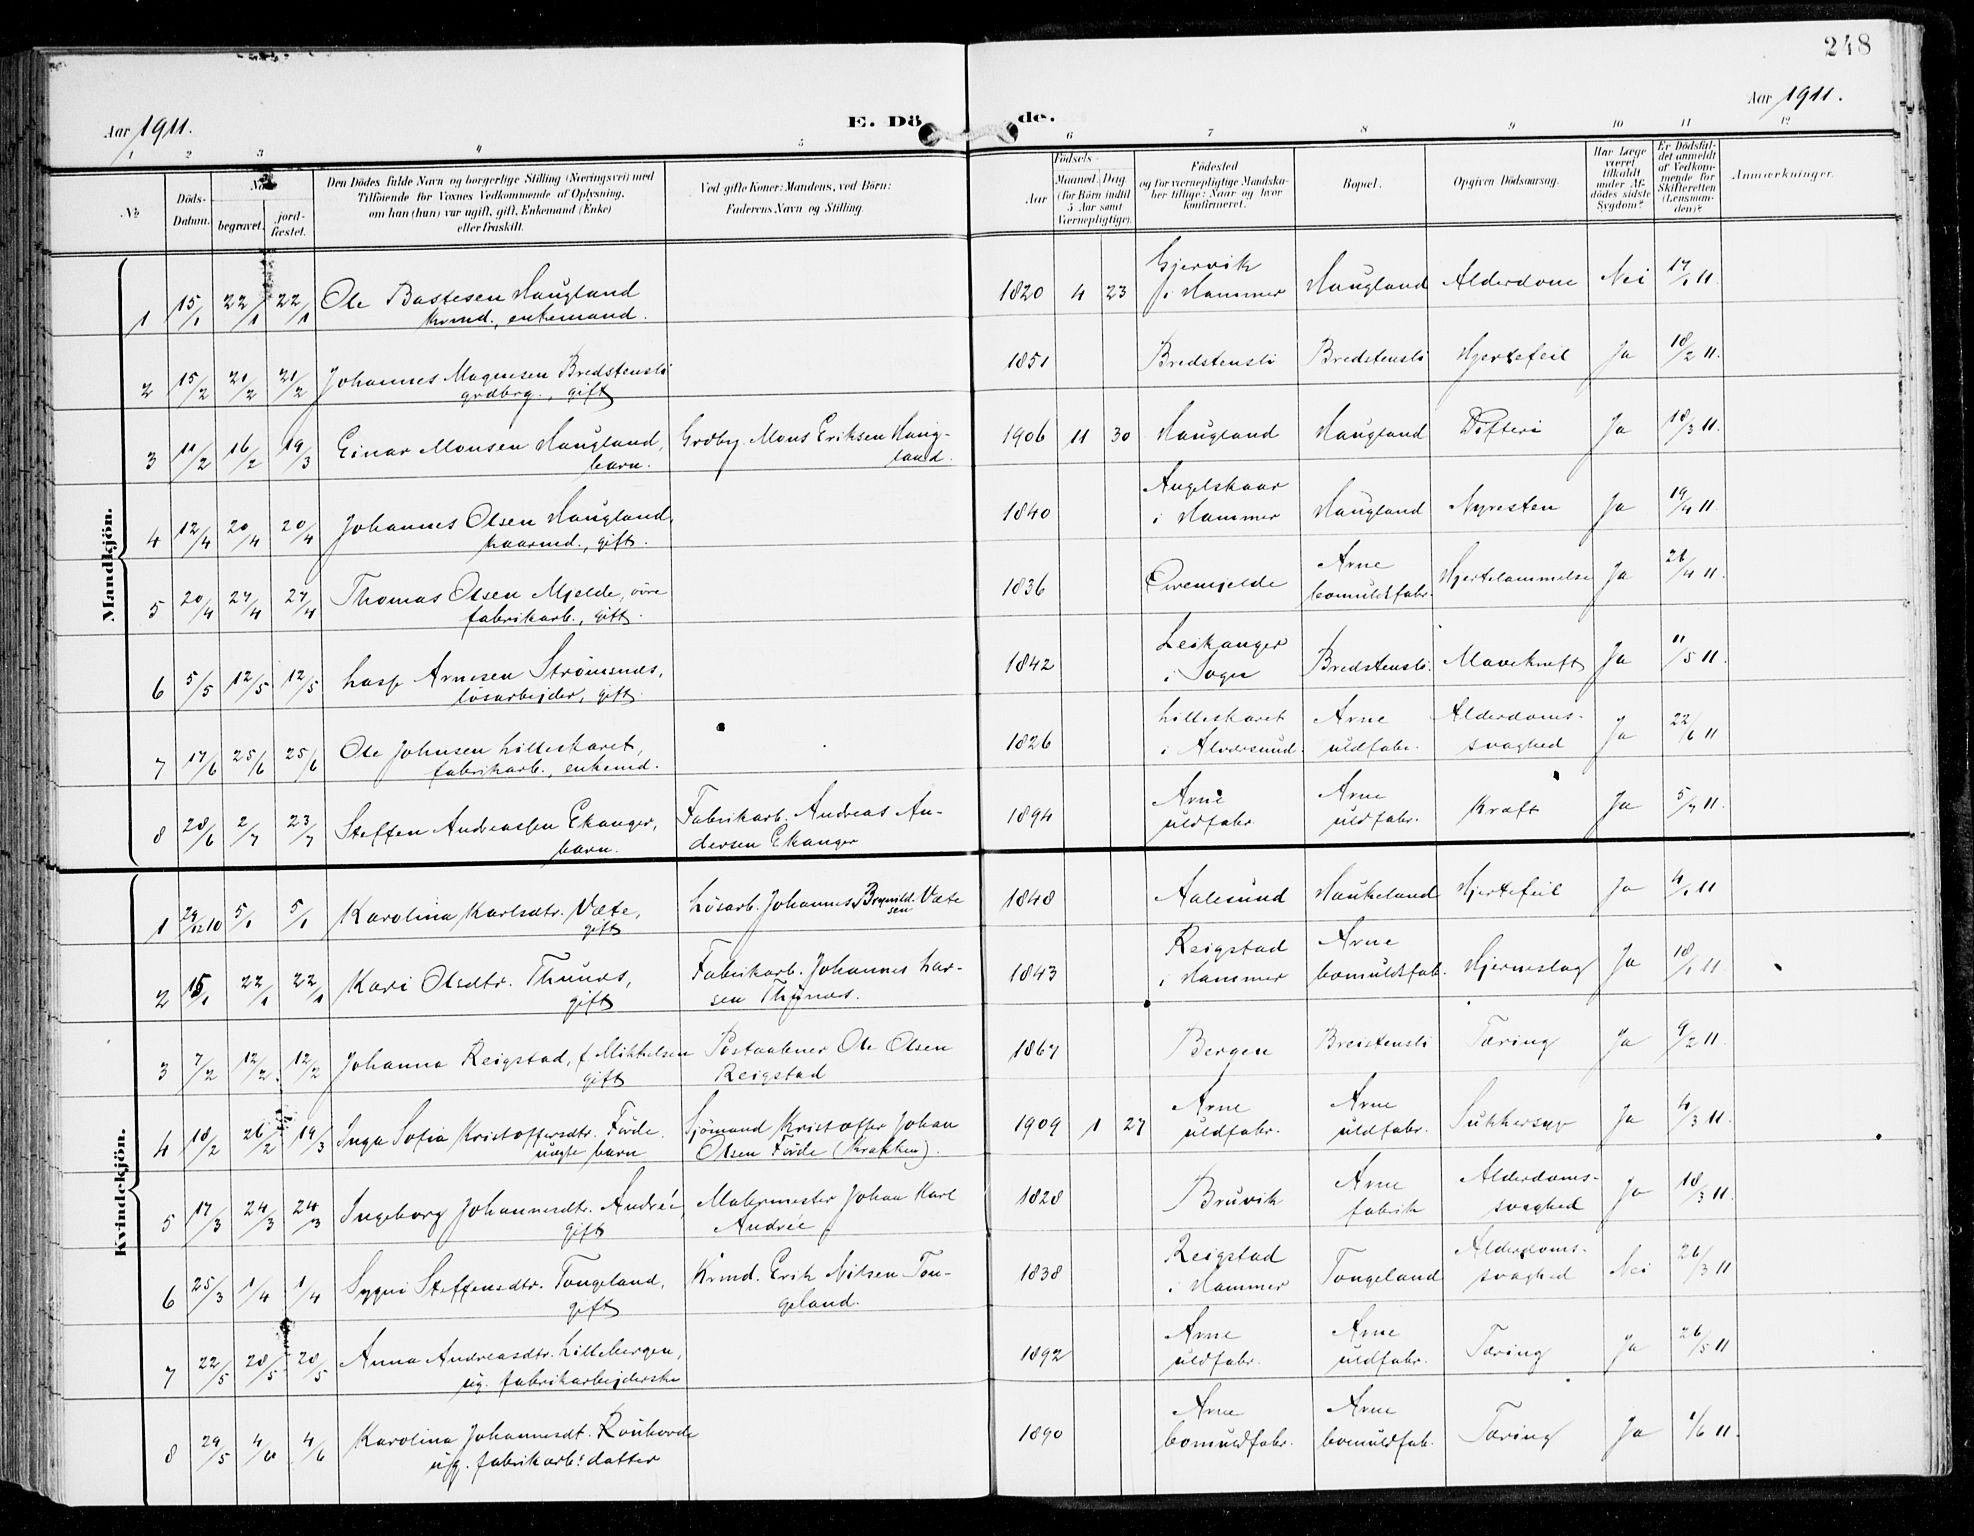 248
Aar 1911.
E. Dö de.
Aar 1911.
1 2 3 4 5 6 7 8 9 10 11 12
№
Döds-Datum.
begravet.
jord-fæstet.
Den Dödes fulde Navn og borgerlige Stilling (Næringsvei) med
Tilföiende for Voxnes Vedkommende af Oplysning,
om han (hun) var ugift, gift, Enkemand (Enke)
eller fraskilt.
Ved gifte Koner: Mandens, ved Börn:
Faderens Navn og Stilling.
Födsels-
Aar
Maaned. Dag
(for Börn indtil
5 Aar samt
Værnepligtige).
Födested
og for værnepligtige Mandska-
ber tillige: Naar og hvor
konfirmeret.
Bopæl.
Opgiven Dödsaarsag.
Har Læge
været
tilkaldt
under Af-
dödes sidste
Sygdom?
Er Dödsfal-
det anmeldt
af Vedkom-
mende for
Skifteretten
(Lensman-
den)?
Anmærkninger.
Mandkjön.
1 15/1 22/1 22/1 Ole Bastesen Haugland
krmd., enkemand.
1820 4 23 Gjervik
i Hammer Haugland Alderdom Nei 17/1 11.
2 15/2 21/2 21/2 Johannes Magnesen Bredstensli
grdbrg., gift
1851 Bredstensli Bredstensli Hjertefeil Ja 18/2 11.
3 11/2 16/2 19/3 Einar Monsen Haugland,
barn.
Grdbg. Mons Eriksen Haug-
land.
1906 11 30 Haugland Haugland Difteri Ja 18/3 11.
4 12/4 20/4 20/4 Johannes Olsen Haugland,
kaarmd., gift.
1840 Angelskaar
i Hammer Haugland Nyresten Ja 19/4 11.
5 20/4 27/4 27/4 Thomas Olsen Mjelde, övre
fabrikarb., gift.
1836 Övremjelde Arne
bomuldsfabr. Hjertelammelse Ja 26/4 11.
6 5/5 12/5 12/5 Lasse Arnesen Strömsnes,
lösarbejder, gift
1842 Leikanger
i Sogn Bredstensli. Mavekræft Ja 11/5 11.
7 17/6 25/6 25/6 Ole Johnsen Lilleskaret,
fabrikarb., enkemd.
1826 Lilleskaret
i Alversund. Arne
uldfabr. Alderdoms-
svaghed Ja 22/6 11
8 28/6 2/7 23/7 Steffen Andreassen Ekanger,
barn.
Fabrikarb. Andreas An-
dersen Ekanger
1894 Arne
uldfabr Arne
uldfabr. Kræft Ja 5/7 11.
Kvindekjön.
1 29/12 10 5/1 5/1 Karolina Karlsdtr. Væte,
gift
Lösarb. Johannes Brynild-
sen Væte
1848 Aalesund Haukeland Hjertefeil Ja 4/1 11
2 15/1 22/1 22/1 Kari Olsdtr. Thunæs,
gift
Fabrikarb. Johannes Lar-
sen Thunæs.
1843 Reigstad
i Hammer Arne
bomuldsfab. Hjerneslag Ja 18/1 11
3 7/2 12/2 12/2 Johanna Reigstad, f. Mikkelsen
gift
Postaabner Ole Olsen
Reigstad
1867 Bergen Breistensli Tæring Ja 9/2 11.
4 18/2 26/2 19/3 Inga Sofia Kristoffersdtr. Förde.
uægte barn
Sjömand Kristoffer Johan
Olsen Förde (Krakken).
1909 1 27 Arne
uldfabr. Arne
uldfabr. Sukkersyg Ja 4/3 11.
5 17/3 24/3 24/3 Ingeborg Johannesdtr. Andrée,
gift
Malermester Johan Karl
Andrée
1828 Bruvik Arne
fabrik Alderdoms-
svaghed Ja 18/3 11.
6 25/3 1/4 1/4 Sygni Steffensdtr. Tongeland,
gift
Krmd. Erik Nilsen Ton-
geland.
1838 Reigstad
i Hammer Tongeland Alderdoms-
svaghed Nei 26/3 11
7 22/5 28/5 28/5 Anna Andreasdtr. Lillebergen,
ug. fabrikarbejderske
1892 Arne
uldfabr. Arne
uldfabr. Tæring Ja 26/5 11
8 29/5 4/6 4/6 Karolina Johannesdt. Rouhovde
ug. fabrikarb: datter
1890 Arne
bomuldfabr. Arne
bomuldfab. Tæring Ja 1/6 11.